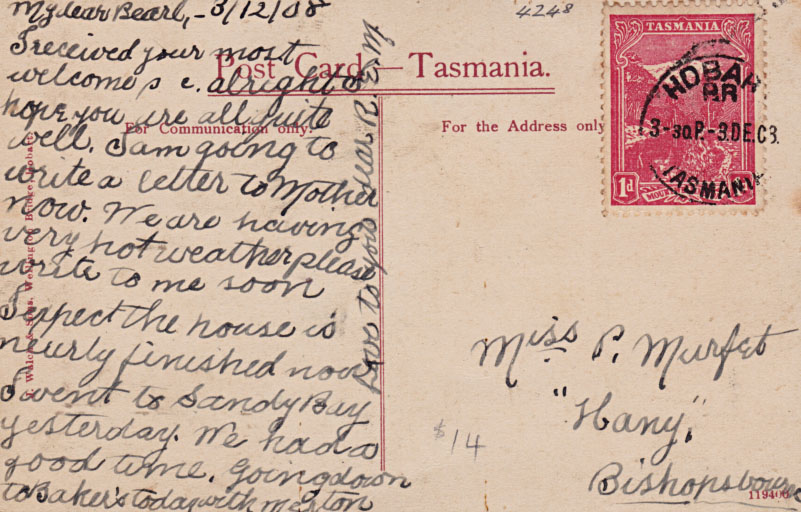 My dear Pearl, - 3/12/08
I received your most
welcome p c. alright
hope you are all quite
well. I am going to
write a letter to Mother
now. We are having
very hot weather please
write to me soon
I expect the house is
nearly finished now
I went to Sandy Bay
yesterday. We had a
good time. Going down
to Baker's today with
Love to you dear
Post Card — Tasmania.
For Communication only.
For the Address only
J. Walch & Sons, Wellington Bridge, Hobart.
4248
TASMANIA
1d
MOUNT
HOBAR
3-30.P-3.DE.08
TASMANIA
Miss P. Murfet
"Hany",
Bishopsbourne
$14
119406